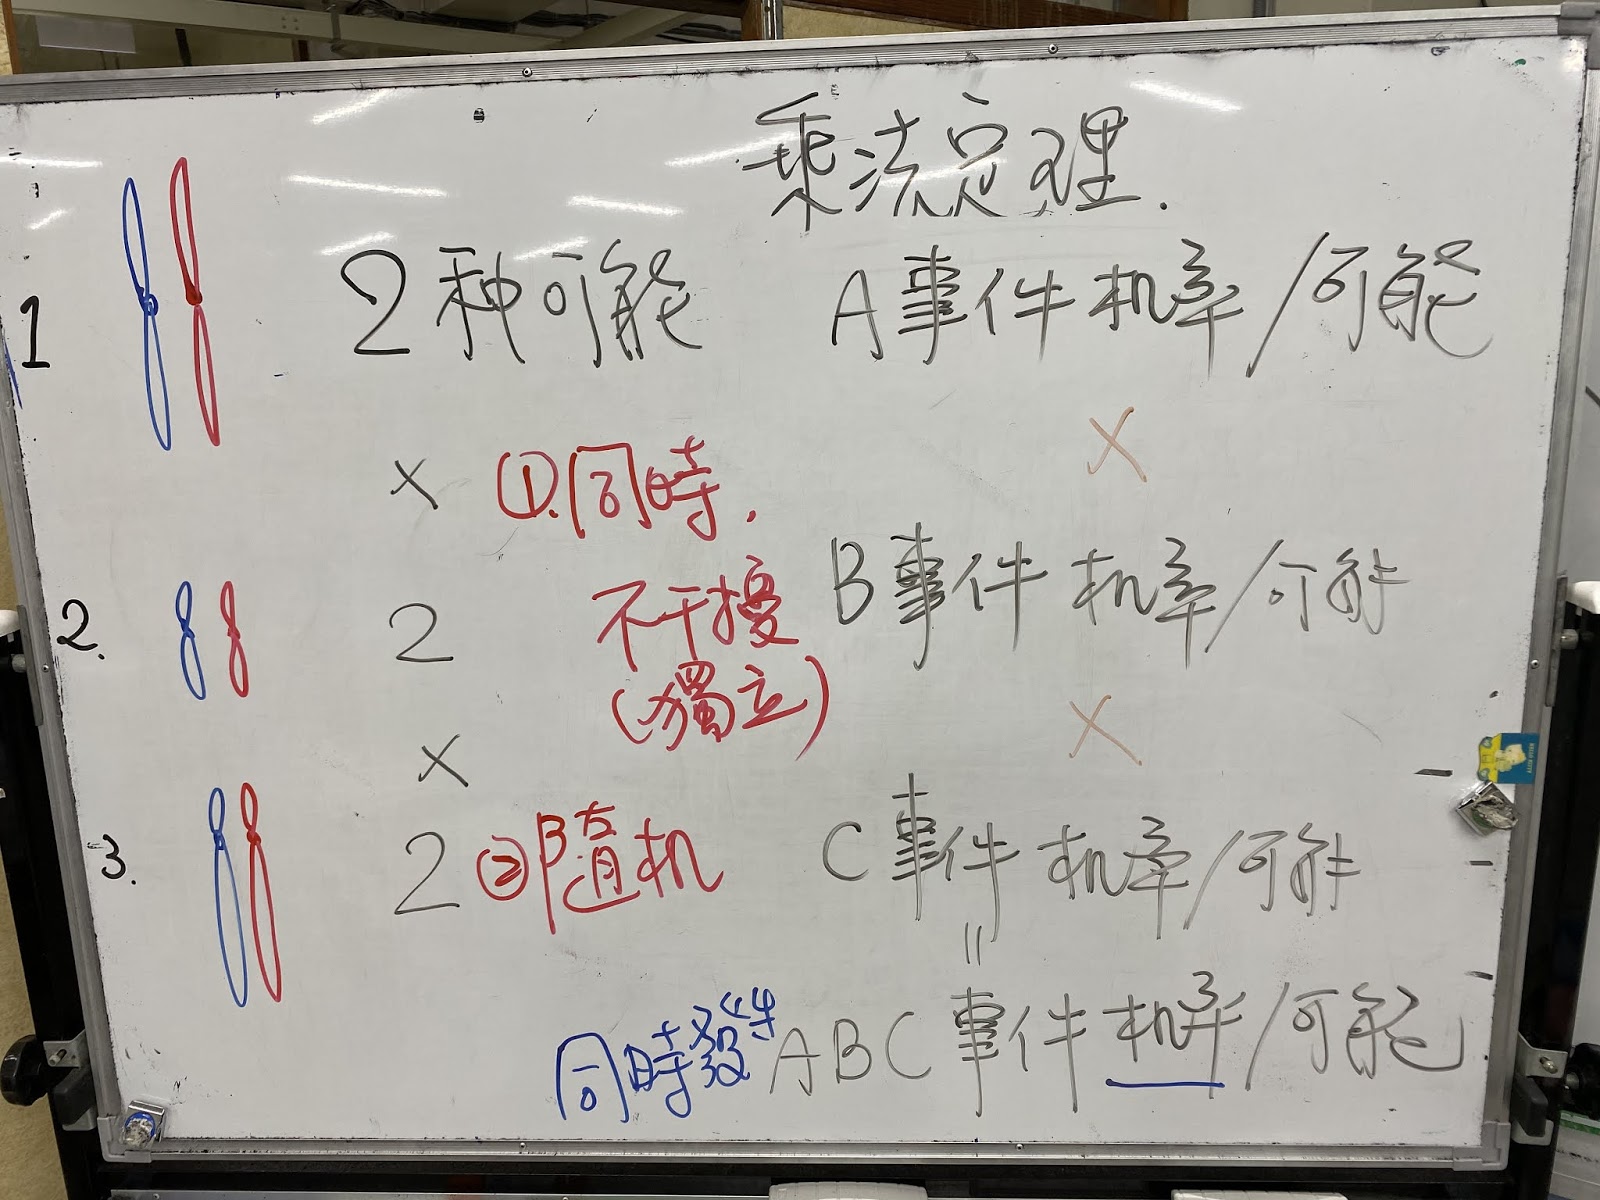 乘法定理.
1 2種可能 A事件机率/可能
× ①.同時. ×
2. 2 不干擾 B事件机率/可能
(獨立)
× ×
3. 2 ②隨机 C事件机率/可能
=
同時發生 ABC事件机率/可能